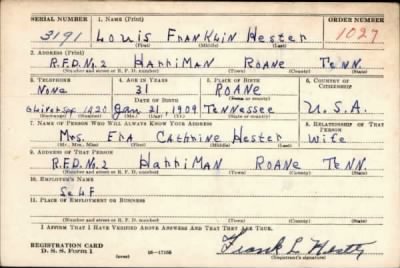 SERIAL NUMBER 1. NAME (Print) ORDER NUMBER
3191 Louis Franklin Hester 1027
(First) (Middle) (Last)
2. ADDRESS (Print)
R.F.D. No. 2 Harriman Roane Tenn.
(Number and street or R. F. D. number) (Town) (County) (State)
3. TELEPHONE 4. AGE IN YEARS 5. PLACE OF BIRTH 6. COUNTRY OF CITIZENSHIP
None 31 Roane
(Town or county)
DATE OF BIRTH
1420 Jan 31, 1909 Tennessee U.S.A.
(Exchange) (Number) (Mo.) (Day) (Yr.) (State or country)
7. NAME OF PERSON WHO WILL ALWAYS KNOW YOUR ADDRESS 8. RELATIONSHIP OF THAT PERSON
Mrs. Era Cathrine Hester Wife
(Mr., Mrs., Miss) (First) (Middle) (Last)
9. ADDRESS OF THAT PERSON
R.F.D. No. 2 Harriman Roane Tenn.
(Number and street or R. F. D. number) (Town) (County) (State)
10. EMPLOYER'S NAME
Self
11. PLACE OF EMPLOYMENT OR BUSINESS
(Number and street or R. F. D. number) (Town) (County) (State)
I AFFIRM THAT I HAVE VERIFIED ABOVE ANSWERS AND THAT THEY ARE TRUE.
REGISTRATION CARD
D. S. S. Form 1 (over) 16-17105 Frank L Hester
(Registrant's signature)